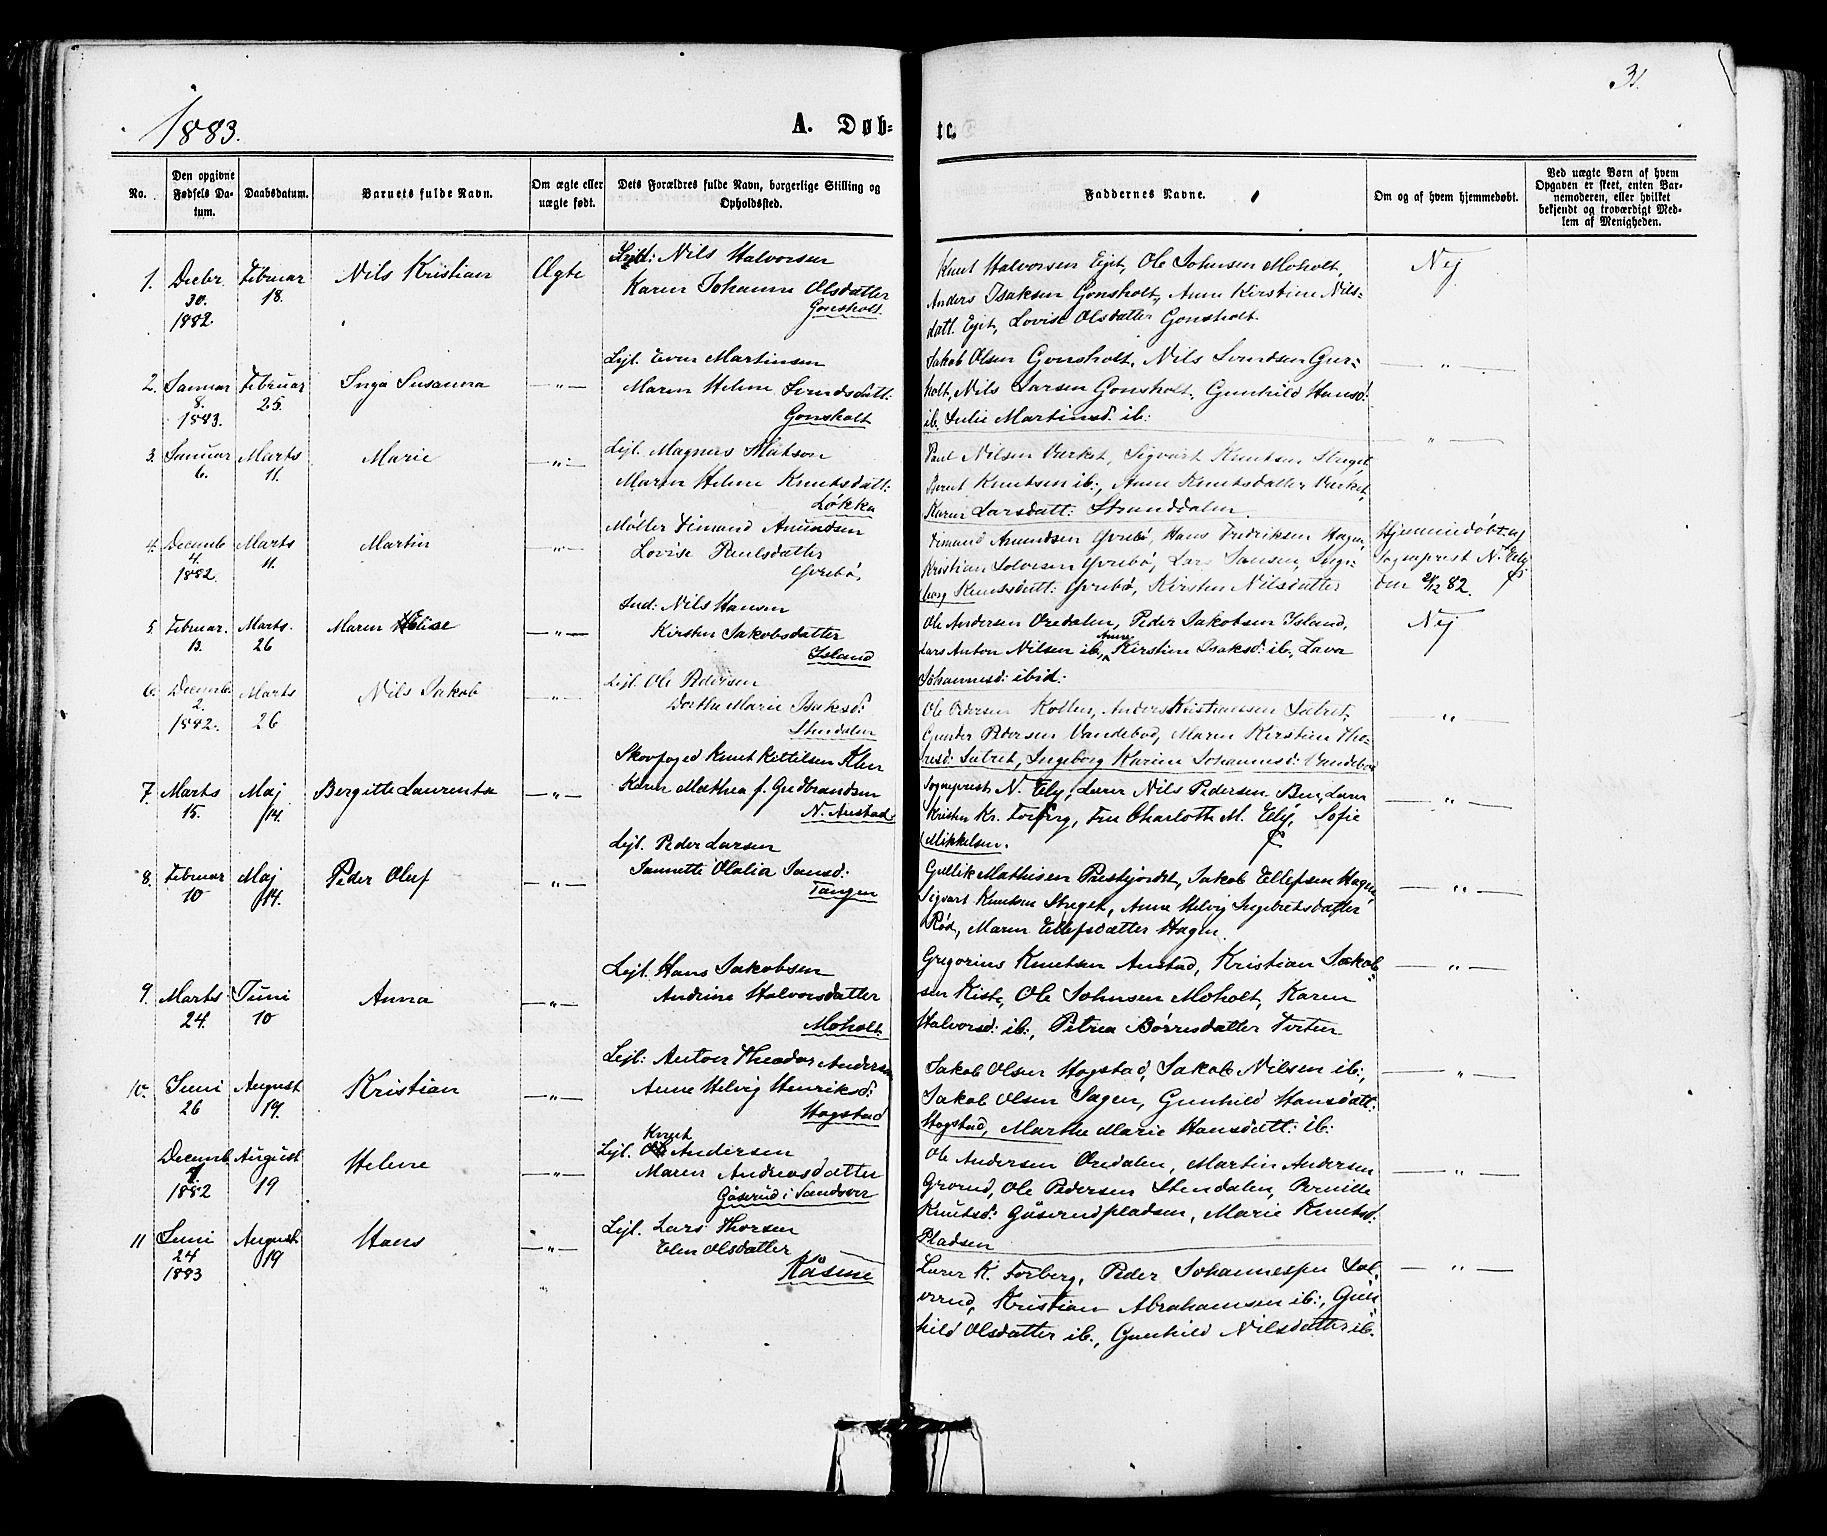 1883.
A. Døb-
No.
Den opgivne Fødsels Datum.
Daabsdatum.
Barnets fulde Navn.
Om ægte eller uægte født.
Dets Forældres fulde Navn, borgerlige Stilling og Opholdssted.
1.
Decbr
30.
1882.
Februar
18.
Nils Kristian
Ægte
Lejl: Nils Halvorsen
Karen Johanne Olsdatter
Gonsholt.
2.
Januar
8.
1883.
Februar
25.
Inga Susanna
—"—
Lejl. Even Martinsen
Maren Helene Svendsdatt:
Gonsholt
3.
Januar
6.
Marts
11.
Marie
—"—
Lejl. Magnus Matson
Maren Helene Knutsdatt:
Løkka
4.
Decemb
4.
1882.
Marts
11.
Martin
—"—
Møller Amundsen
Lovise Paulsdatter
Gvrebø,
5.
Februar.
13.
Marts.
26
Maren Elise
—"—
Ind: Nils Hansen
Kirsten Jakobsdatter
Island
6.
Decemb.
2.
1882.
Marts
26
Nils Jakob
—"—
Lejl. Ole Pedersen
Dorthe Marie Isaksd:
Stendalen
7.
Marts
15.
Maj
14.
Bergitte Laurentse
—"—
Skovfoged Knut Kittilsen
Karen Mathea f. Gudbrandsen
N. Austad.
8.
Februar
10
Maj
14.
Peder Oluf
—"—
Lejl. Peder Larsen
Jannette Olalia Jansd:
Tangen
9.
Marts
24.
Juni
10
Anna
—"—
Lejl. Hans Jakobsen
Andrine Halvorsdatter
Moholt
10.
Juni
26
August
19.
Kristian
—"—
Lejl: Anton Theodor Andersen
Anne Helvig Henriksd:
Hogstad
Decemb
1882
August
19
Helene
—"—
Knut
Lejl. Andersen
Maren Andreasdatter
Gåserud i Sandsver
11
Juni
24
1883
August
19
Hans
—"—
Lejl. Lars Thorsen
Elen Olsdatter
Råsine
31.
te.
Faddernes Navne.
Om og af hvem hjemmedøbt.
Ved uægte Børn af hvem Opgaven er skeet, enten Barnemoderen, eller hvilket bekjendt og troværdigt Medlem af Menigheden.
Knut Halvorsen Eget, Ole Johnsen Moholt,
Anders Isaksen Gonsholt, Anne Kirstine Nils-
datt. Eget, Lovise Olsdatter Gonsholt.
Nej
Jakob Olsen Gonsholt, Nils Svendsen Gur-
holt, Nils Larsen Gonsholt, Gunhild Hansd:
ib. Julie Martinsd: ib:
—"—
Paul Nilsen Værket, Sigvart Knutsen Streget,
Bernt Knutsen ib:, Anne Knutsdatter Værket,
Karen Larsdatt: Stranddalen.
—"—
Amundsen Gvrebø, Hans Fredriksen Hagen,
Kristian Solvesen Gvrebø, Lars Jansen, Inge-
borg Knutsdatt: Gvrebø, Kirsten Nilsdatter
Hjemmedøbt af
Sogneprest N. Ely
den 24/12 82.
Ole Andersen Oredalen, Peder Jakobsen Island,
Lars Anton Nilsen ib., Anne Kirstine Isaksd: ib., Lava
Johannesd: ibid:
Nej
Ole Pedersen Kollen, Anders Kristiansen Sætret,
Gunder Pedersen Vandebod, Maren Kirstine Tho-
resd: Sætret, Ingeborg Karine Johannesd: Vandebod
—"—
Sogneprest N. Ely, Lærer Nils Pedersen Bue, Lærer
Kristen Kr. Forberg, Fru Charlotte M. Ely, Sofie
Mikkelsen.
—"—
Gullik Mathisen Prestjordet, Jakob Ellefsen Hagen,
Sigvart Knutsen Streget, Anne Helvig Ingebretsdatter
Rød, Maren Ellefsdatter Hagen.
—"—
Gregorius Knutsen Austad, Kristian Jakob-
sen Kiste, Ole Johnsen Moholt, Karen
Halvorsd: ib:, Petrea Børresdatter Tveten
—"—
Jakob Olsen Hogstad, Jakob Nilsen ib:,
Jakob Olsen Sagen, Gunhild Hansdatt:
Hogstad, Marthe Marie Hansdatt: ib:
—"—
Ole Andersen Oredalen, Martin Andersen
Grorud, Ole Pedersen Stendalen, Pernille
Knutsd: Gåserudpladsen, Marie Knutsd:
Pladsen
—"—
Lærer K. Forberg, Peder Johannessen Sol-
verud, Kristian Abrahamsen ib:, Gun-
hild Olsdatter ib:, Gunhild Nilsdatter ib.
—"—